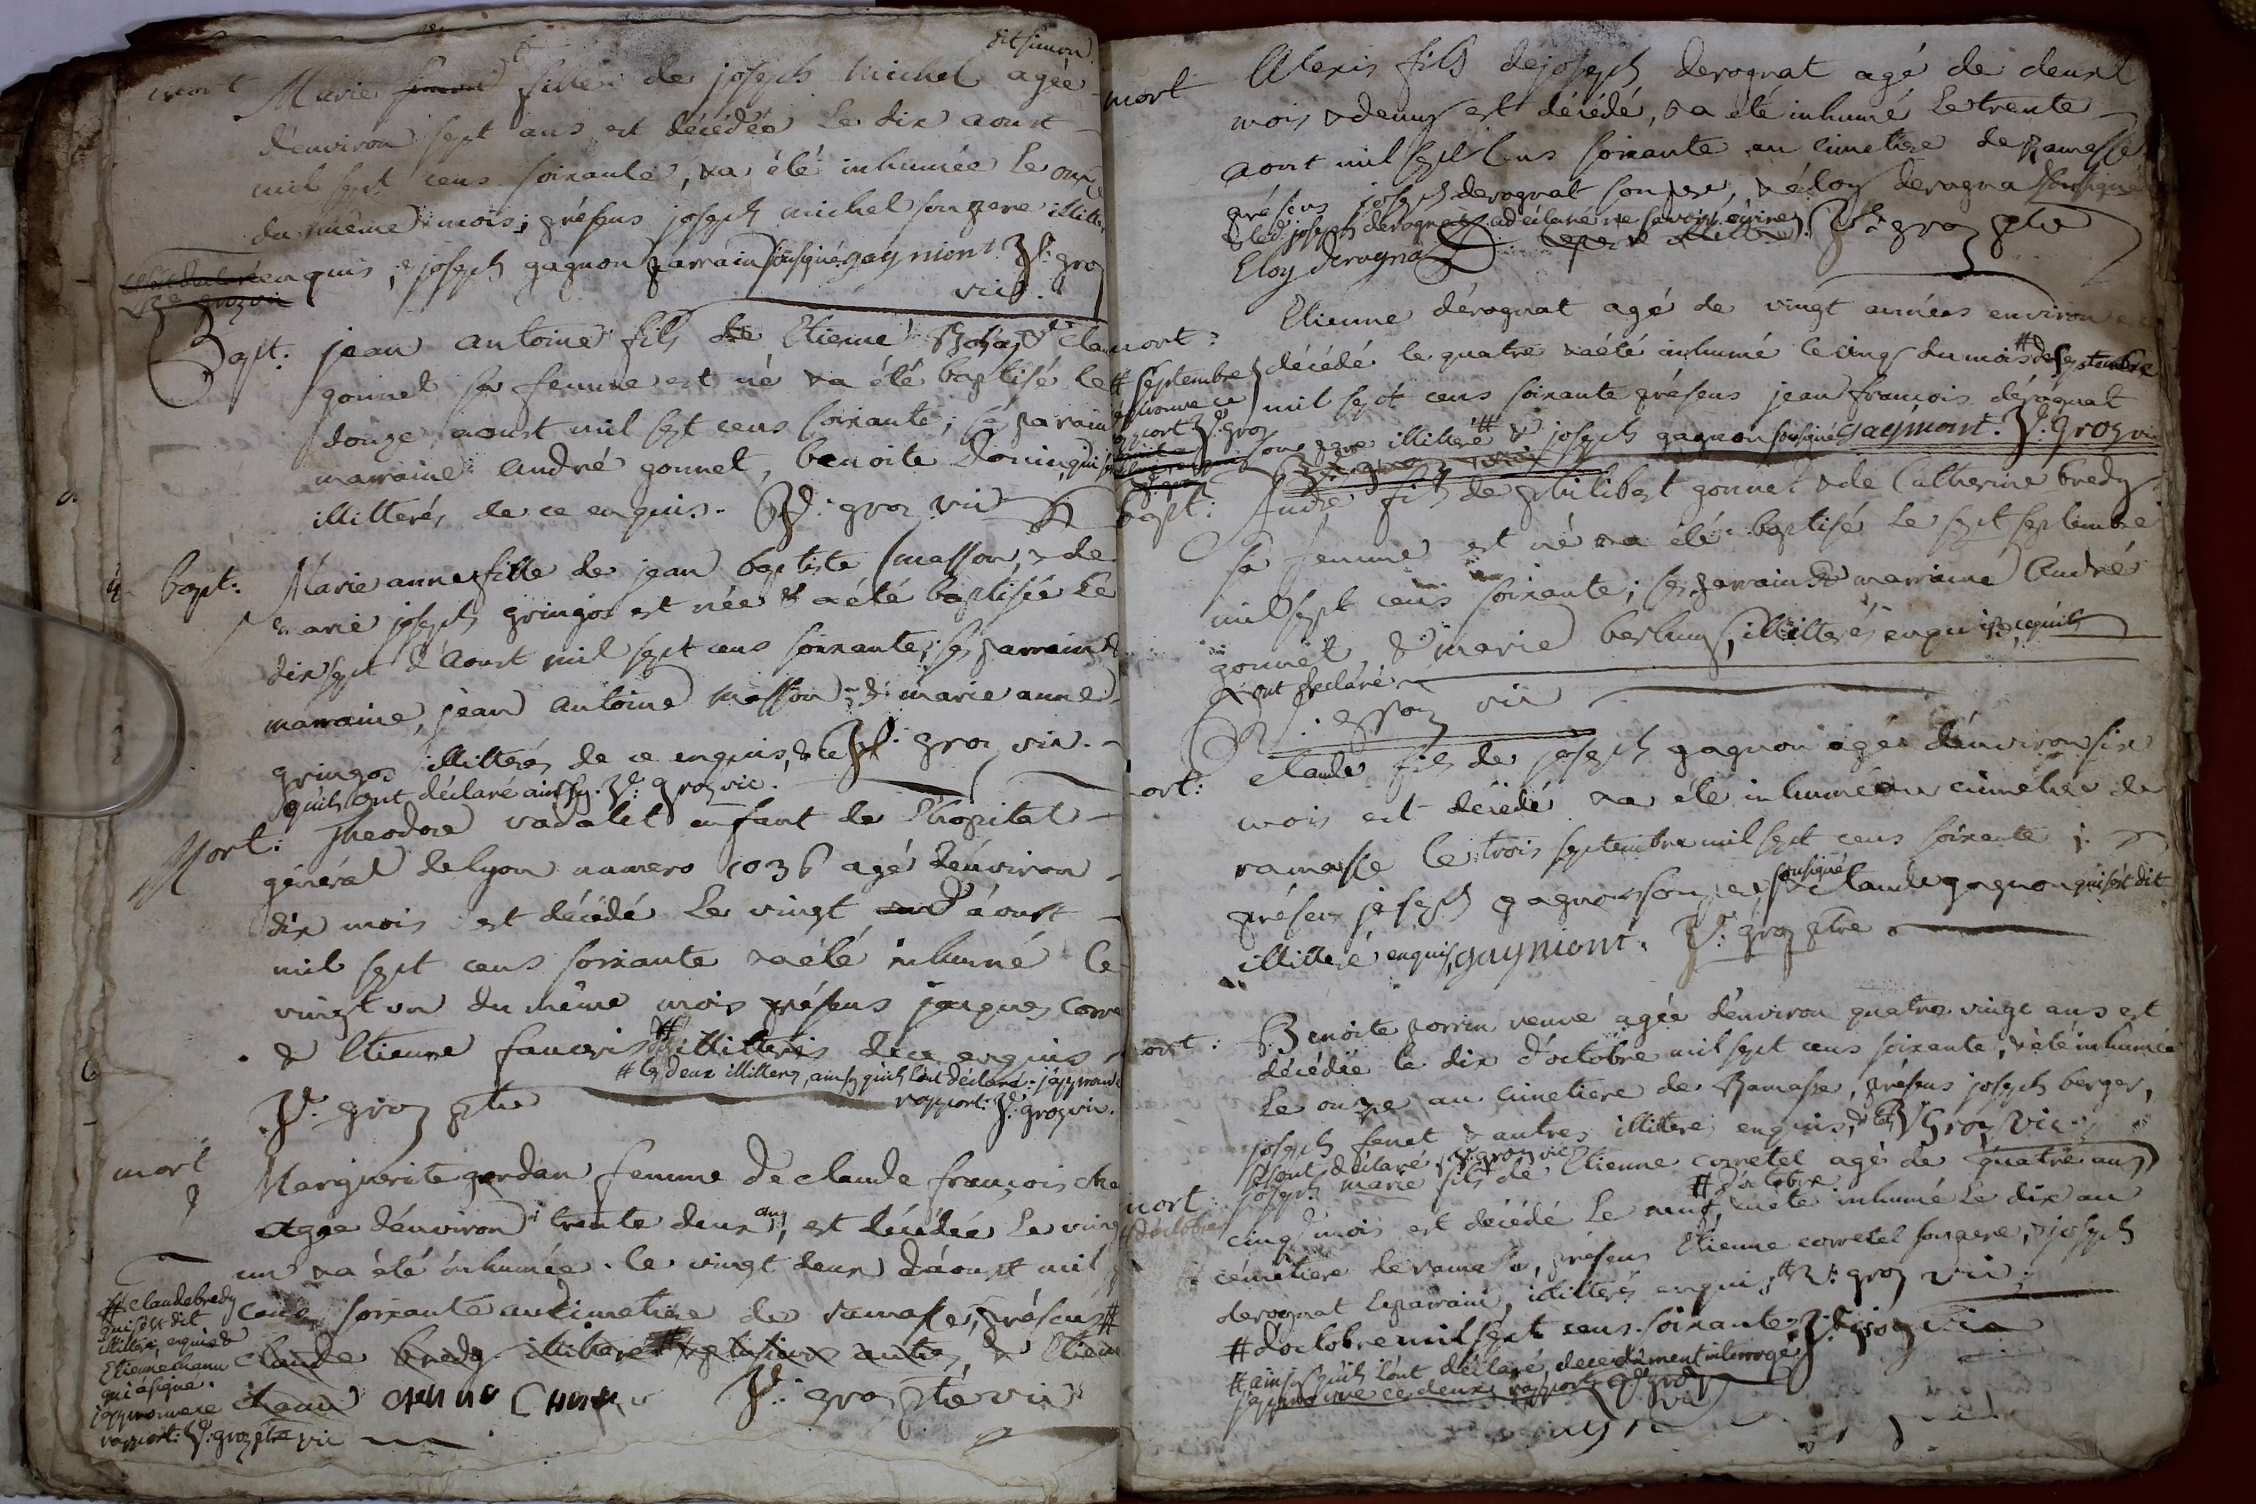 dit simon
mort Marie simond fille de joseph michel agée
d'environ sept ans est décédée Le dix aoust
mil sept cens soixante, & a été inhumée Le onze
du même mois; présens joseph michel son pere illitteré
enquis, & joseph gagnon parrain sousigné gaymont. Jh: groz
vic.
Bapt: jean antoine fils de Etienne
gonnet sa femme est né & a été baptisé le
douze aoust mil sept cens soixante; sé parain
marraine andré gonnet, benoite
illitterés de ce enquis. groz vic
bapt: Marie anne fille de jean baptiste masson, & de
marie joseph gringoz est née & a été baptisée Le
dix sept d'aoust mil sept cens soixante; ses parrain &
marraine, jean antoine masson, & marie anne
gringoz illitterés de ce enquis, & groz vic.
qu'ils ont déclaré ainsy. groz vic.
Mort: Theodore vadalet enfant de l'hopital
général de lyon numero 1036 agé d'environ
dix mois est décédé Le vingt d'aoust
mil sept cens soixante & a été inhumé le
vingt un du même mois présens jacques
& Etienne illitterés de ce enquis
# les deux illitterés, ainsy qu'ils l'ont déclaré. j'approuve
rapport: groz vic.
groz ptre
mort Marguerite femme de claude françois
agée d'environ trente deux ans, est décédée Le vingt
un & a été inhumée le vingt deux d'aoust mil
cens soixante au cimetiere de ramasse, présens #
claude bredy illitteré # & plusieurs autres, & Etienne
groz ptre vic
# claude bredy
qui s'est dit
illitteré, enquis &
Etienne
qui a signé.
j'approuve ce
rapport: groz ptre vic
mort Alexis fils de joseph derognat agé de deux
mois & demy est décédé, & a été inhumé Le trente
aoust mil sept cens soixante au cimetiere de Ramasse
présens joseph derognat son pere, & éloy derogna sousigné
& led. joseph derognat a déclaré ne savoir écrire
Eloy derogna groz ptre
mort: Etienne dérognat agé de vingt années environ est
décédé le quatre & a été inhumé le cinq du mois # de septembre
# septembre
j'approuve ce
rapport groz
mil sept cens soixante présens jean françois dérognat
son pere illitteré # & joseph gagnon sousigné gaymont. groz vic
bapt: André fils de philibert gonnet & de Catherine bredy
sa femme est né & a été baptisé Le sept septembre
mil sept cens soixante; ses parrain & marraine André
gonnet, & marie illitterés enquis, ce qu'ils
ont déclaré
vic
mort: claude fils de joseph gagnon agé d'environ six
mois est décédé & a été inhumé au cimetiere de
ramasse le trois septembre mil sept cens soixante;
présens joseph gagnon son pere, sousigné & claude gagnon qui s'est dit
illitteré enquis, gaymont. groz ptre
mort: Benoite porrin veuve agée d'environ quatre vingt ans est
décédée le dix d'octobre mil sept cens soixante, & a été inhumée
Le onze au cimetiere de Ramasse, présens joseph berger,
joseph fenet & autres illitteré enquis, groz vic
se sont déclaré, groz vic
mort joseph marie fils de Etienne corretel agé de quatre ans
# d'octobre
cinq mois est décédé Le neuf & a été inhumé Le dix au
cémétiere de ramasse, présens Etienne corretel son pere, & joseph
derognat le parrain, illitterés enquis # groz vic.
# d'octobre mil sept cens soixante. groz vic
# ainsy qu'ils l'ont déclaré, de ce dûment interrogé
j'approuve ce deux rapport groz
vic